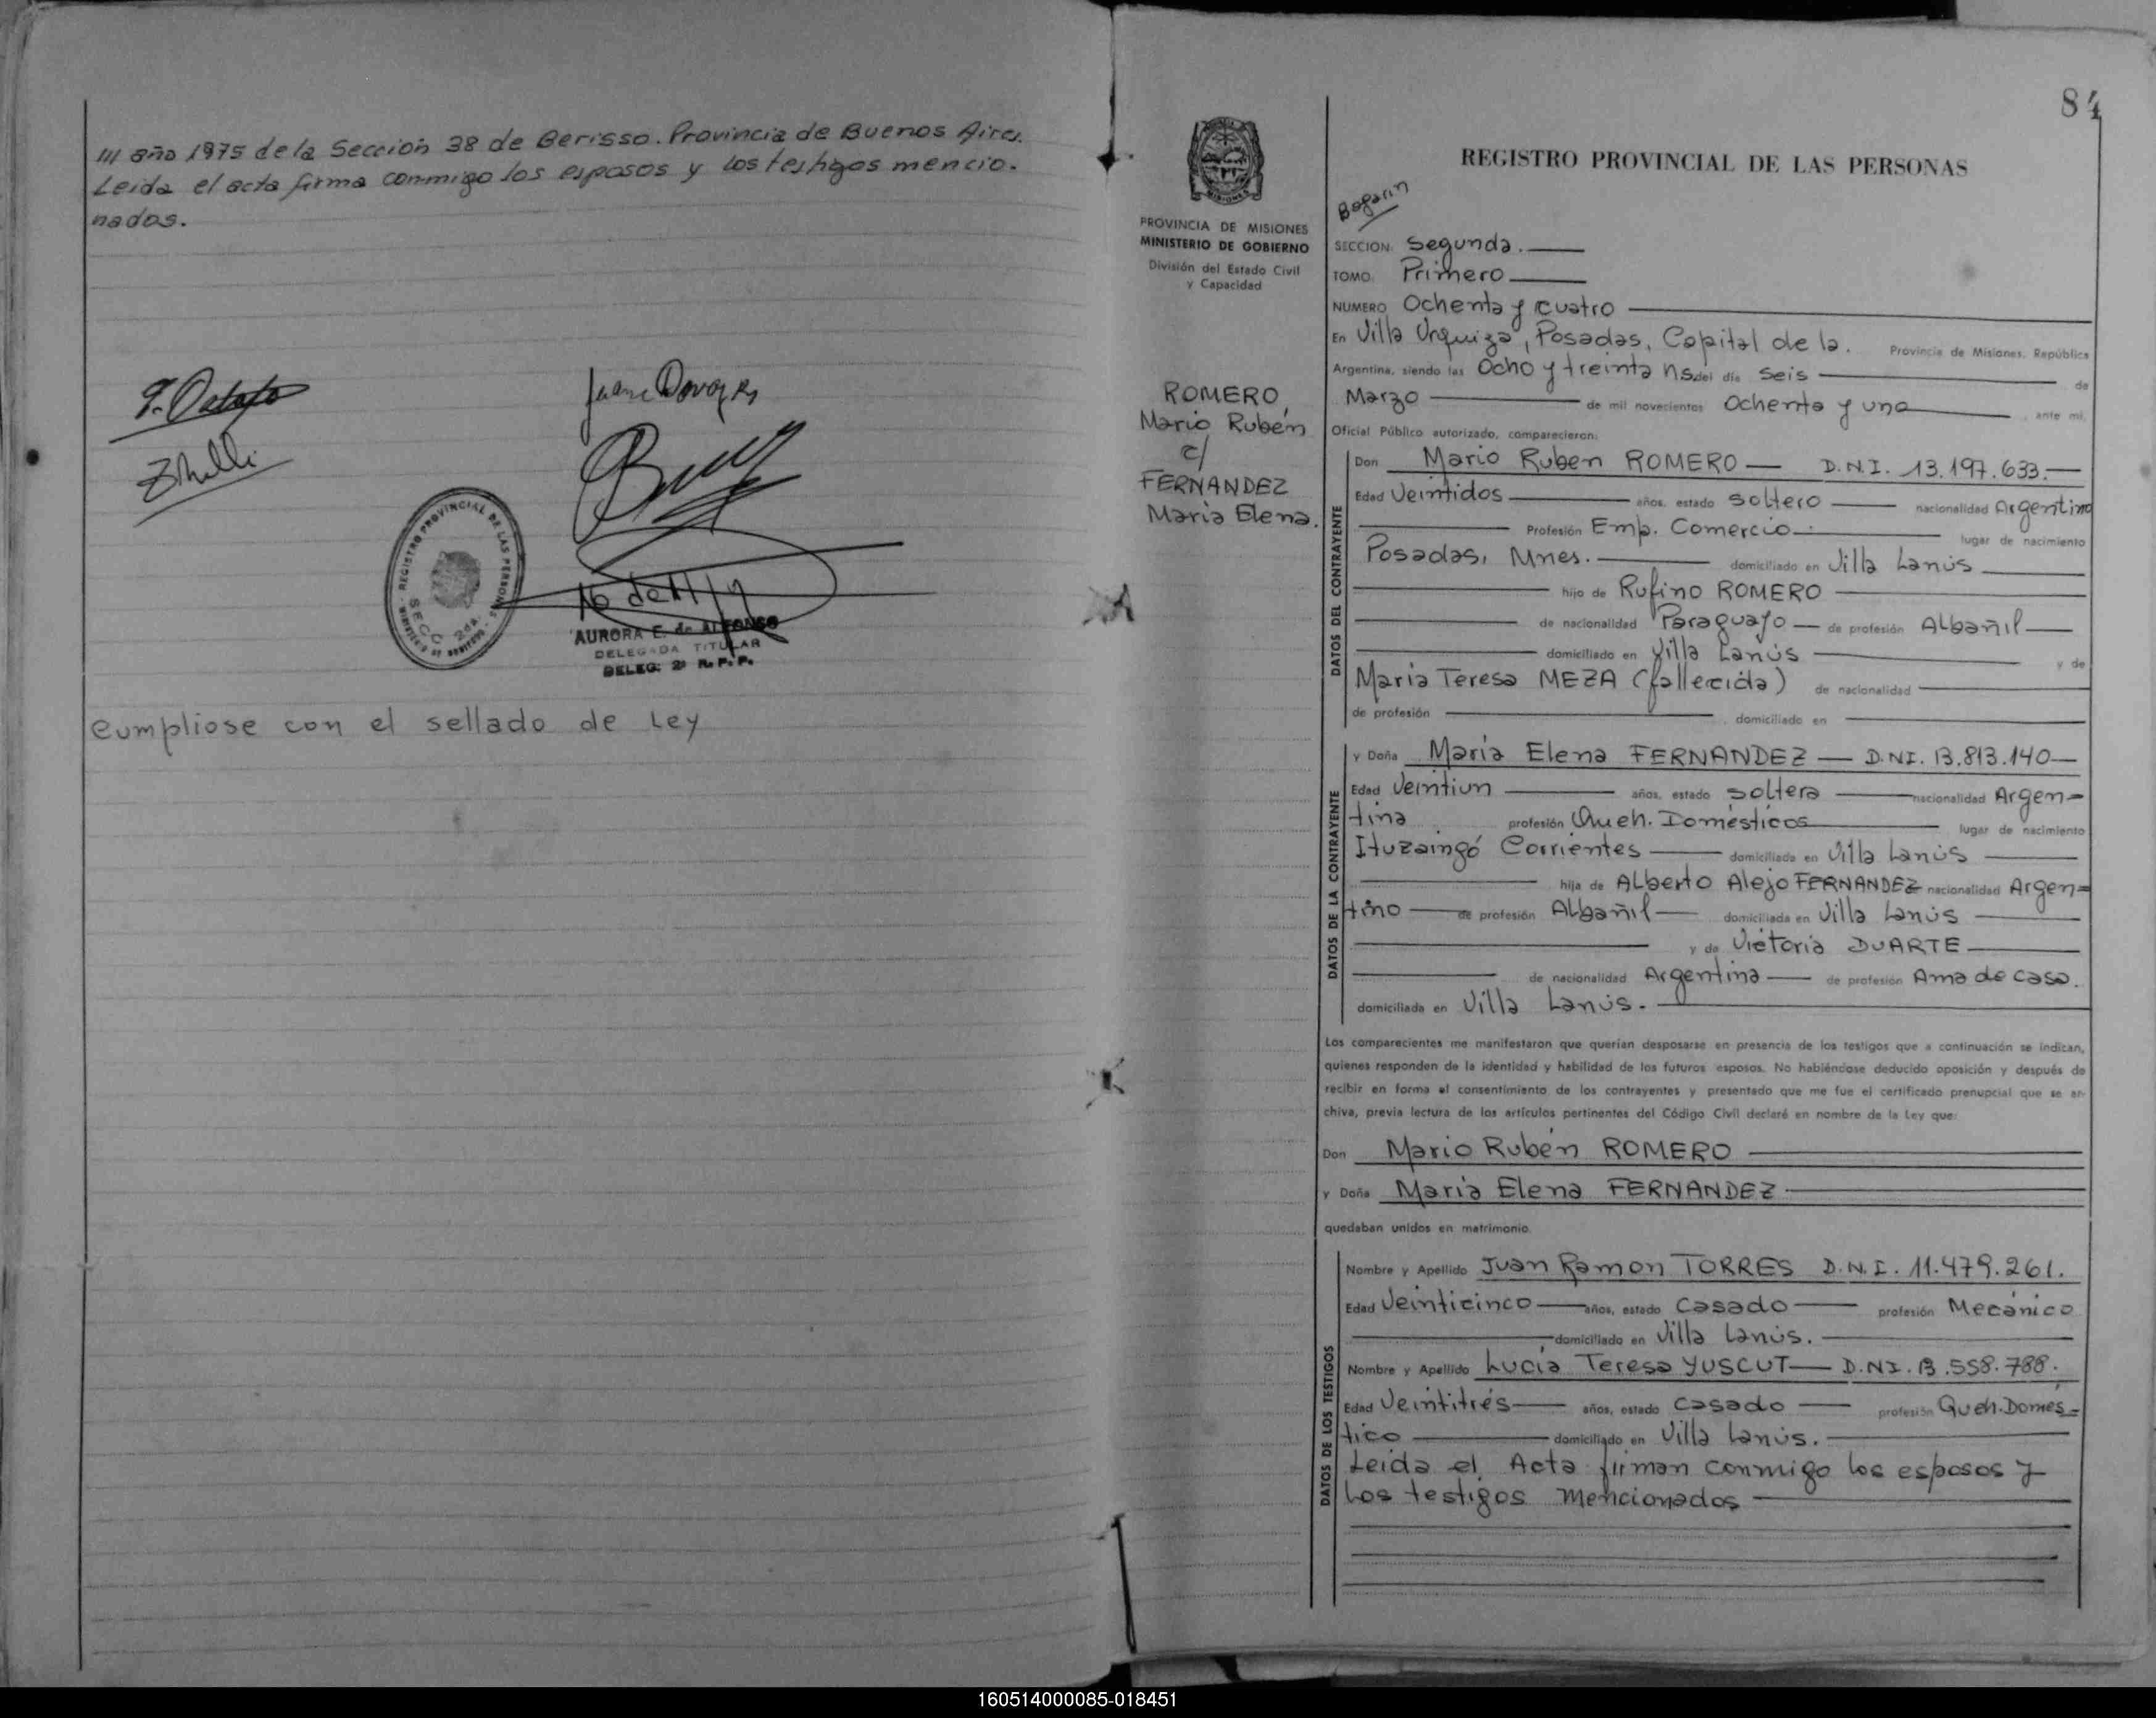 III año 1975 de la Sección 38 de Berisso. Provincia de Buenos Aires.
Leida el acta firma conmigo los esposos y los testigos mencio-
nados.
REGISTRO PROVINCIAL DE LAS PERSONAS
SECC. 2da.
AURORA E. de ALFONSO
DELEGADA TITULAR
DELEG. 2ª R. P. P.
Cumpliose con el sellado de Ley
84
REGISTRO PROVINCIAL DE LAS PERSONAS
MISIONES
PROVINCIA DE MISIONES
MINISTERIO DE GOBIERNO
División del Estado Civil
y Capacidad
ROMERO,
Mario Rubén
c/
FERNANDEZ
Maria Elena.
Bogarin
SECCION: Segunda.
TOMO: Primero
NUMERO Ochenta y cuatro
En Villa Urquiza, Posadas, Capital de la. Provincia de Misiones, República
Argentina, siendo las Ocho y treinta hs. del día Seis de
Marzo de mil novecientos Ochenta y uno, ante mi,
Oficial Público autorizado, comparecieron:
DATOS DEL CONTRAYENTE
Don Mario Ruben ROMERO — D.N.I. 13.197.633.—
Edad Veintidos años, estado soltero nacionalidad Argentino
Profesión Emp. Comercio. lugar de nacimiento
Posadas, Mnes. domiciliado en Villa Lanús
hijo de Rufino ROMERO
de nacionalidad Paraguayo de profesión Albañil
domiciliado en Villa Lanús y de
Maria Teresa MEZA (fallecida) de nacionalidad
de profesión , domiciliado en
DATOS DE LA CONTRAYENTE
y Doña Maria Elena FERNANDEZ — D.N.I. 13.813.140—
Edad Veintiun años, estado soltera nacionalidad Argen=
tina profesión Queh. Domésticos lugar de nacimiento
Ituzaingó Corrientes domiciliada en Villa Lanús
hija de Alberto Alejo FERNANDEZ nacionalidad Argen=
tino de profesión Albañil domiciliada en Villa Lanús
y de Victoria DUARTE
de nacionalidad Argentina de profesión Ama de casa.
domiciliada en Villa Lanús.
Los comparecientes me manifestaron que querían desposarse en presencia de los testigos que a continuación se indican,
quienes responden de la identidad y habilidad de los futuros esposos. No habiéndose deducido oposición y después de
recibir en forma el consentimiento de los contrayentes y presentado que me fue el certificado prenupcial que se ar-
chiva, previa lectura de los artículos pertinentes del Código Civil declaré en nombre de la Ley que:
Don Mario Rubén ROMERO
y Doña Maria Elena FERNANDEZ
quedaban unidos en matrimonio.
DATOS DE LOS TESTIGOS
Nombre y Apellido Juan Ramon TORRES D.N.I. 11.479.261.
Edad Veinticinco años, estado Casado profesión Mecánico
domiciliado en Villa Lanús.
Nombre y Apellido Lucía Teresa YUSCUT — D.N.I. 13.558.788.
Edad Veintitrés años, estado Casado profesión Queh. Domés=
tico domiciliado en Villa Lanús.
Leida el Acta firman conmigo los esposos y
los testigos mencionados
160514000085-018451